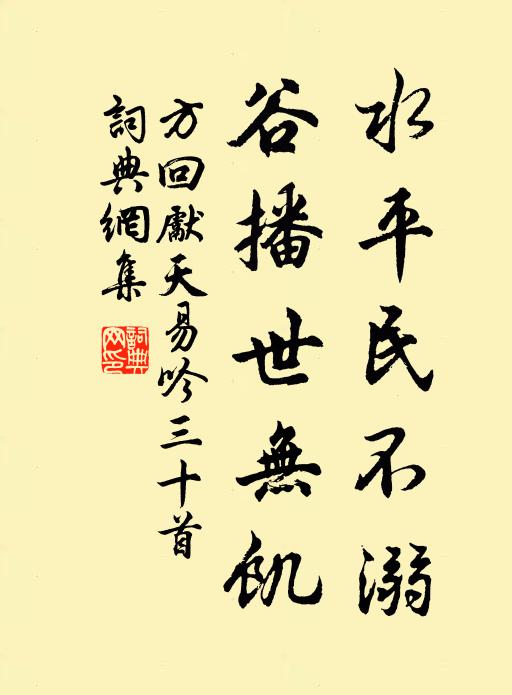 水平民不溺
谷播世無飢
方回獻天易吟三十首
詞典網集
詞典網印